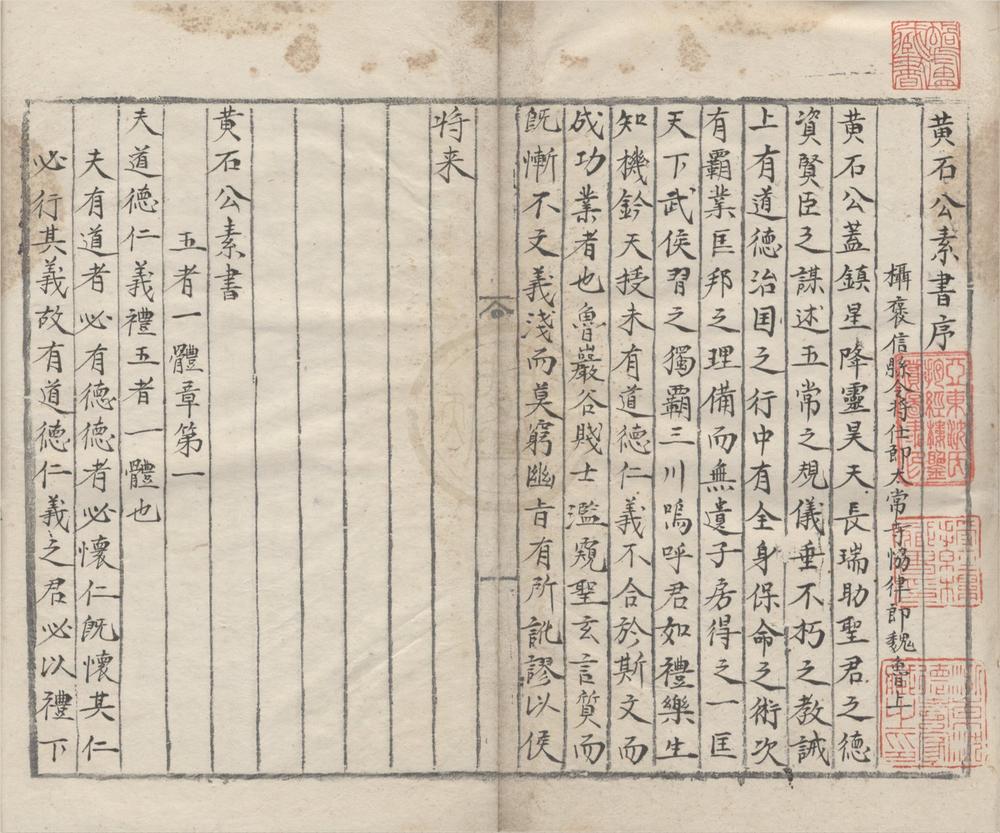 黄石公素書序
攝褒信縣令將仕郎太常寺協律郎魏魯上
黄石公蓋鎮星降靈昊天長瑞助聖君之德
資賢臣之謀述五常之規儀垂不朽之教誡
上有道德治囯之行中有全身保命之術次
有霸業匡邦之理備而無遺子房得之一匡
天下武侯習之獨霸三川嗚呼君如禮樂生
知機鈐天授未有道德仁義不合於斯文而
成功業者也魯巖谷賤士濫窺聖玄言質而
旣慚不文義淺而莫窮幽旨有所訛謬以俟
将来
黄石公素書
五者一體章第一
夫道德仁義禮五者一體也
夫有道者必有德德者必懷仁旣懷其仁
必行其義故有道德仁義之君必以禮下